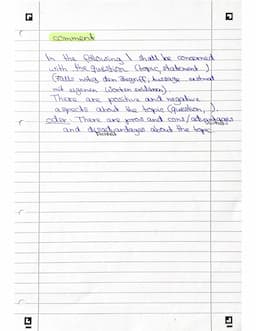 comment
In the following I shall be concerned
with the question (topic, statement)
(Falls nötig den Begriff, Aussage erstmal
mit eigenen Worten erklären).
There are positive and negative
aspects about the topic (question, ).
oder: There are pros and cons / advantages
and disadvantages about the topic